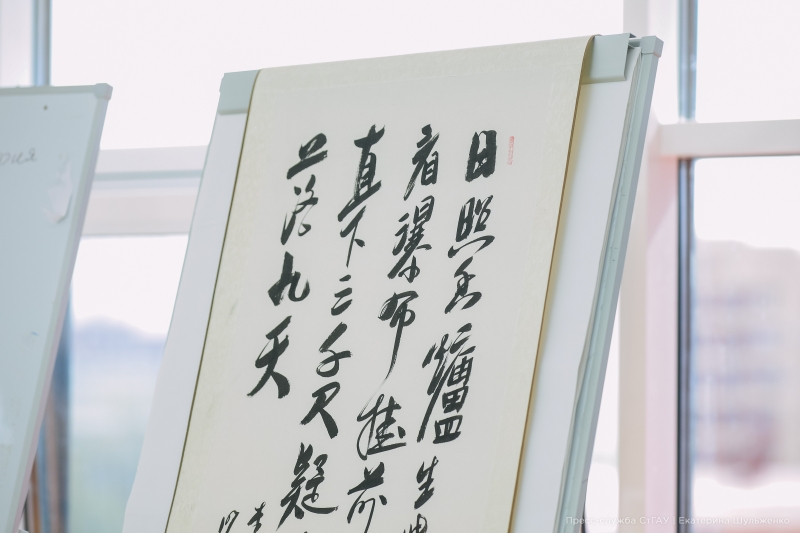 日照香爐生
看瀑布挂前
直下三千尺疑
落九天
Пресс-служба СтГАУ | Екатерина